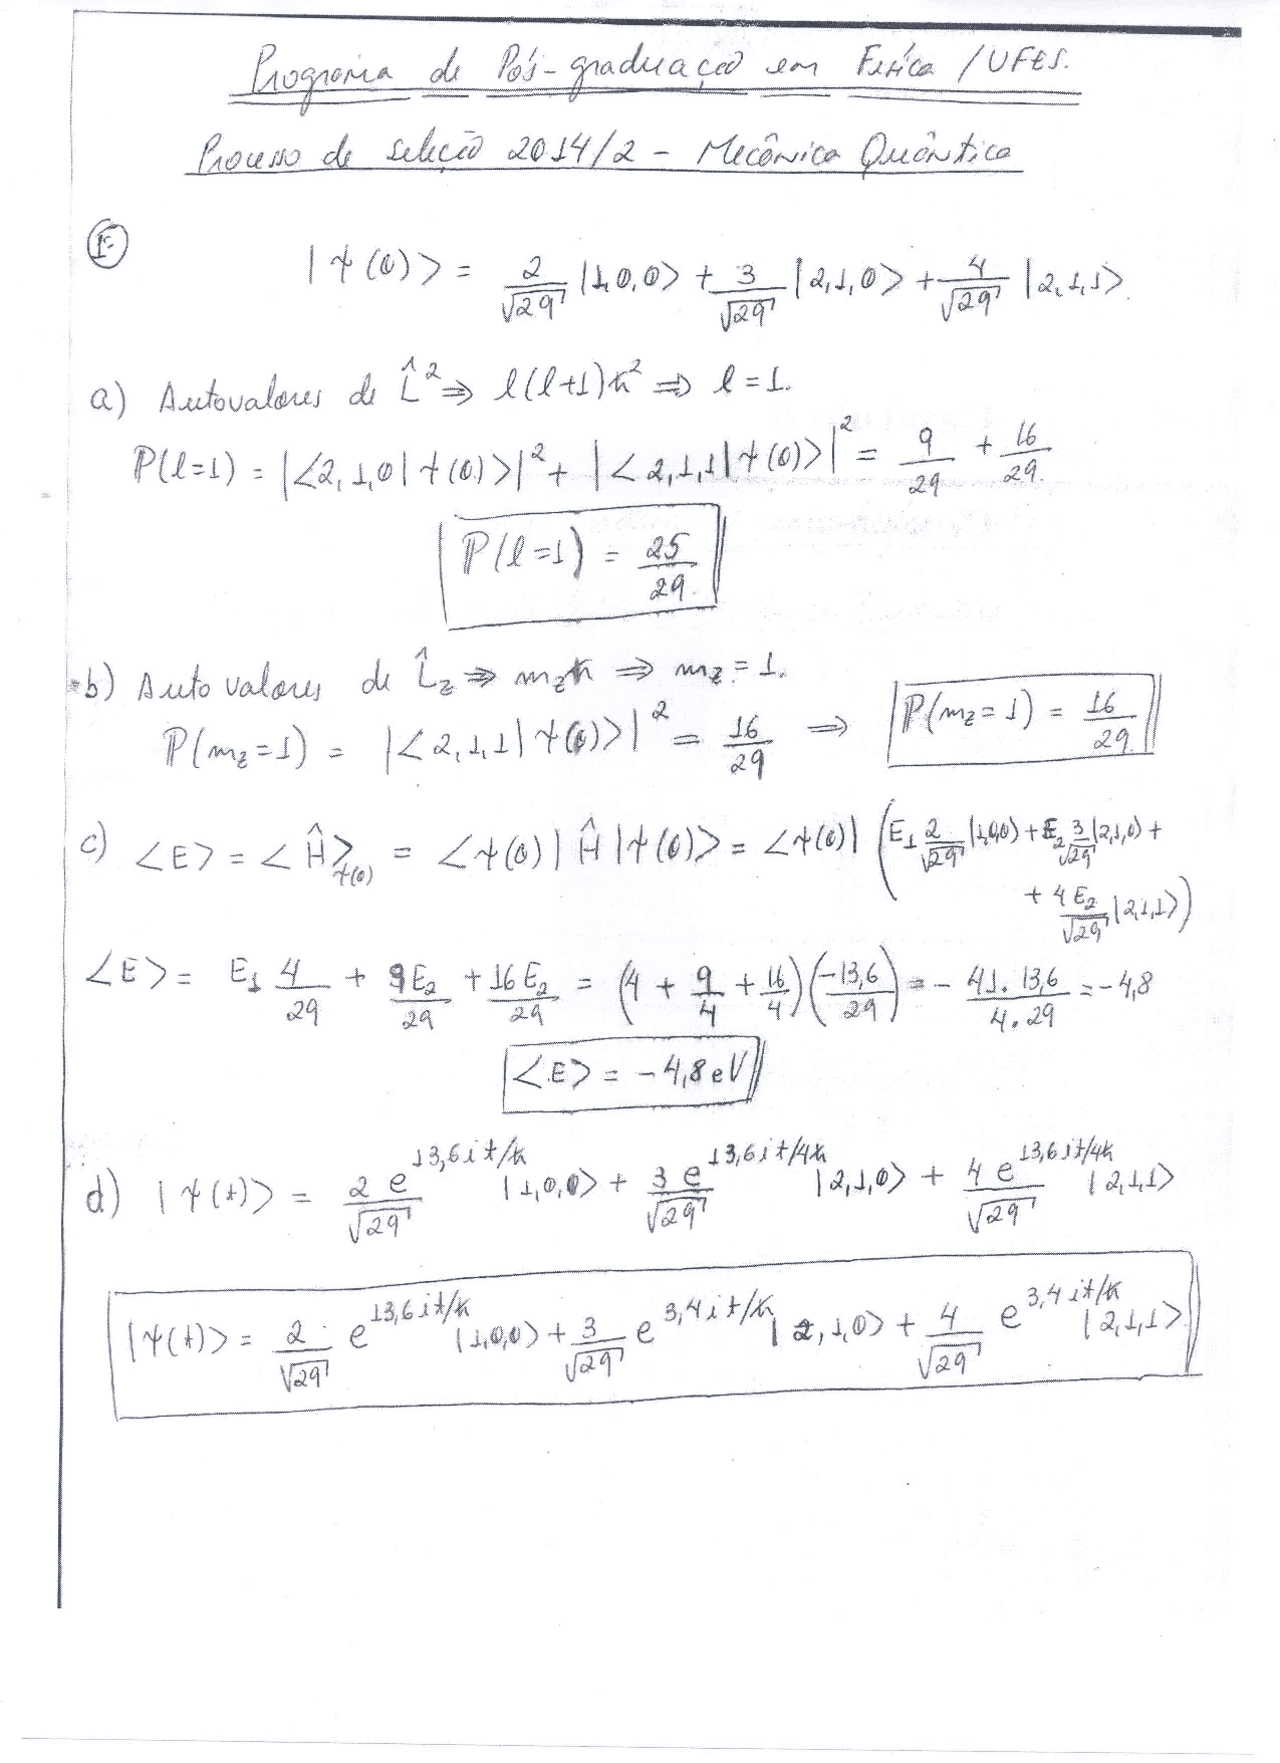 Programa de Pós-graduação em Física / UFES.
Processo de seleção 2014/2 - Mecânica Quântica
1ª
|ψ(0)> = 2/√29 |1,0,0> + 3/√29 |2,1,0> + 4/√29 |2,1,1>.
a) Autovalores de L̂² ⇒ l(l+1)ħ² ⇒ l = 1.
P(l=1) = |<2,1,0|ψ(0)>|² + |<2,1,1|ψ(0)>|² = 9/29 + 16/29.
P(l=1) = 25/29.
b) Autovalores de L̂z ⇒ mzħ ⇒ mz = 1.
P(mz=1) = |<2,1,1|ψ(0)>|² = 16/29 ⇒ P(mz=1) = 16/29.
c) <E> = <Ĥ>ψ(0) = <ψ(0)|Ĥ|ψ(0)> = <ψ(0)| (E₁ 2/√29 |1,0,0> + E₂ 3/√29 |2,1,0> +
+ 4E₂/√29 |2,1,1>)
<E> = E₁ 4/29 + 9E₂/29 + 16E₂/29 = (4 + 9/4 + 16/4)(-13,6/29) = - 41.13,6/4.29 = -4,8
<E> = -4,8 eV
d) |ψ(t)> = 2e^(13,6it/ħ)/√29 |1,0,0> + 3e^(13,6it/4ħ)/√29 |2,1,0> + 4e^(13,6it/4ħ)/√29 |2,1,1>
|ψ(t)> = 2/√29 e^(13,6it/ħ) |1,0,0> + 3/√29 e^(3,4it/ħ) |2,1,0> + 4/√29 e^(3,4it/ħ) |2,1,1>